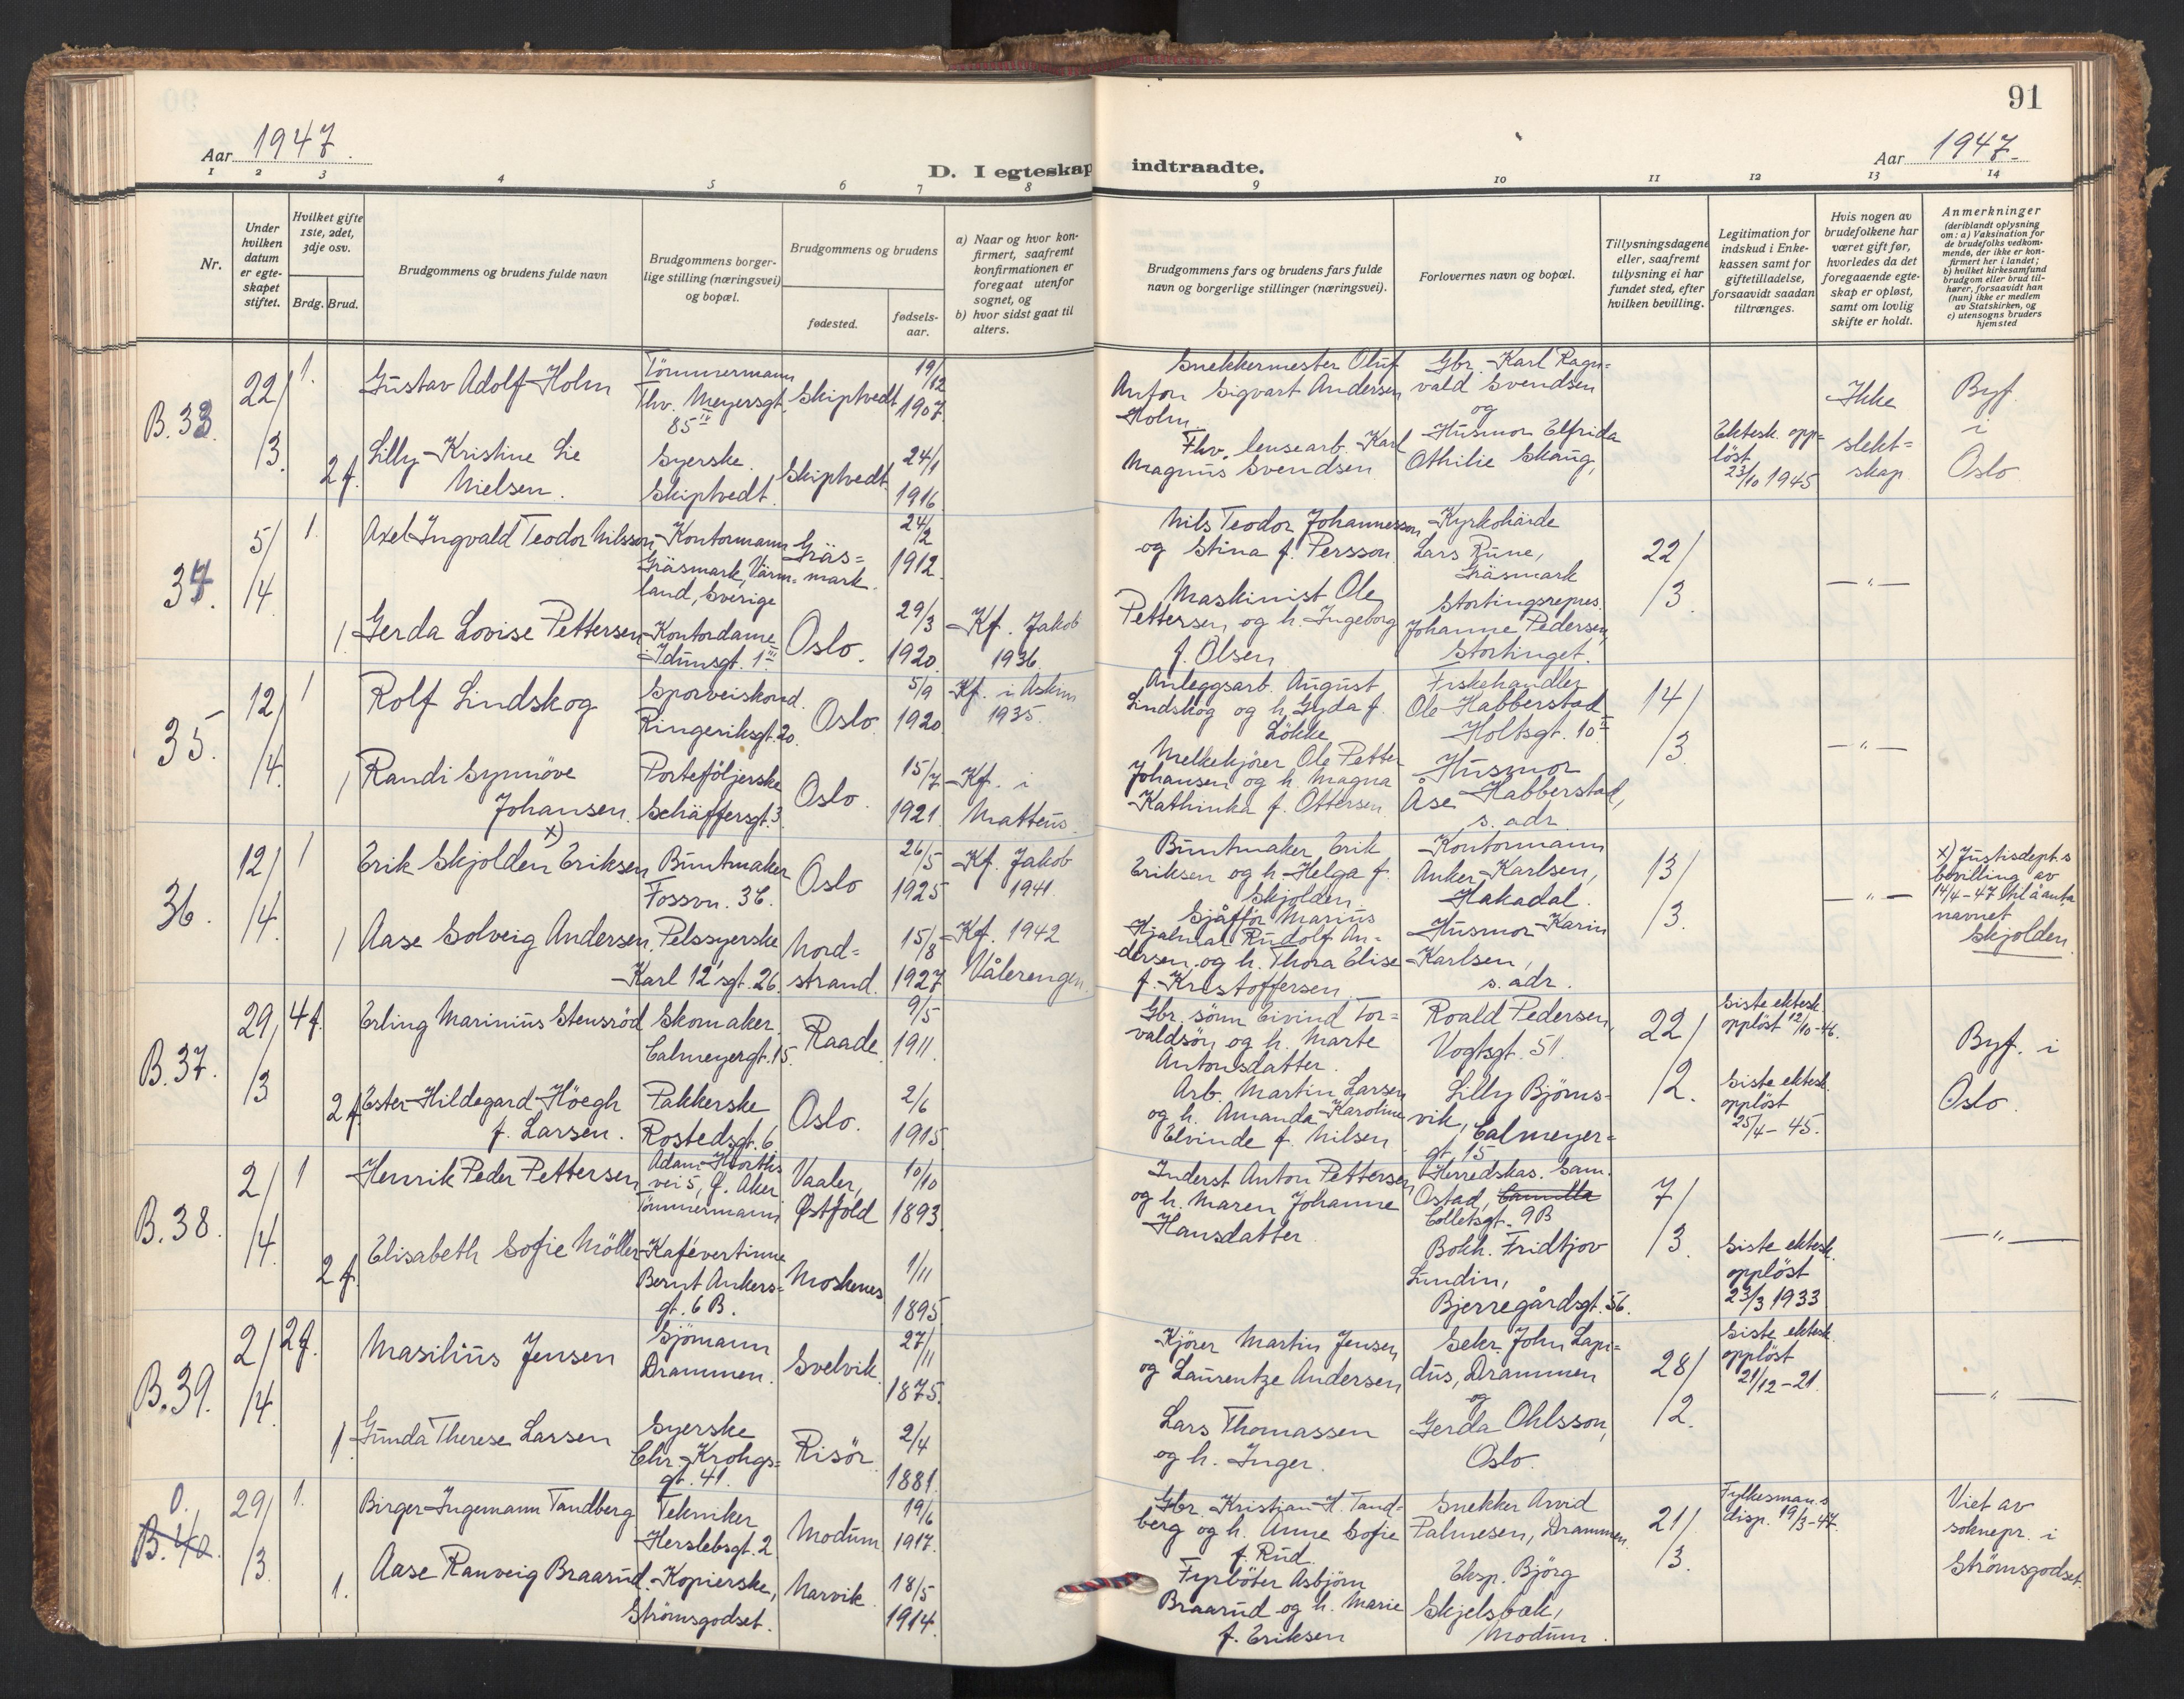 91
Aar 1947.
D. I egteskap indtraadte.
Aar 1947.
1 2 3 4 5 6 7 8 9 10 11 12 13 14
Nr.
Under hvilken datum er egte-skapet stiftet.
Hvilket gifte 1ste, 2det, 3dje osv.
Brdg. Brud.
Brudgommens og brudens fulde navn
Brudgommens borger-lige stilling (næringsvei) og bopæl.
Brudgommens og brudens
fødested.
fødsels-aar.
a) Naar og hvor kon-firmert, saafremt konfirmationen er foregaat utenfor sognet, og
b) hvor sidst gaat til alters.
Brudgommens fars og brudens fars fulde navn og borgerlige stillinger (næringsvei).
Forlovernes navn og bopæl.
Tillysningsdagene eller, saafremt tillysning ei har fundet sted, efter hvilken bevilling.
Legitimation for indskud i Enke-kassen samt for giftetilladelse, forsaavidt saadan tiltrænges.
Hvis nogen av brudefolkene har været gift før, hvorledes da det foregaaende egte-skap er opløst, samt om lovlig skifte er holdt.
Anmerkninger (deriblandt oplysning om: a) Vaksination for de brudefolks vedkom-mende, der ikke er kon-firmert her i landet; b) hvilket kirkesamfund brudgom eller brud til-hører, forsaavidt han (hun) ikke er medlem av Statskirken, og c) utensogns bruders hjemsted
B. 33. 22/3. 1. Gustav Adolf Holm
Tömmermann Thv. Meyersgt. 85 IV
Skiptvedt 19/12 1907.
Snekkermester Oluf Anton Sigvart Andersen Holm
Gbr. Karl Ragn=vald Svendsen og
2 f. Lilly Kristine Lie Nielsen.
Syerske. Skiptvedt.
Skiptvedt 24/1 1916
Fhv. lensearb. Karl Magnus Svendsen
Husmor Elfrida Othilie Skaug,
Ektesk. opp=löst 23/10 1945
Ikke slekt=skap
Byf. i Oslo
34. 5/4 1. Axel Ingvald Teodor Nilsson
Kontormann Gräsmark, Värm=land, Sverige
Gräs=mark. 24/2 1912.
Nils Teodor Johannesson og Stina f. Persson
Kyrkohärde Lars Rune, Gräsmark
22/3. — " —
1. Gerda Lovise Pettersen
Kontordame Idunsgt. 1 III
Oslo. 29/3 1920.
Kf. Jakob 1936.
Maskinist Ole Pettersen og h. Ingeborg f. Olsen
Stortingsrepres. Johanne Pedersen, Stortinget.
35. 12/4. 1 Rolf Lindskog
Sporveiskond. Ringeriksgt. 20.
Oslo. 5/9 1920
Kf. i Askim 1935.
Anleggsarb. August Lindskog og h. Gyda f. Lökke
Fiskehandler Ole Habberstad Holtsgt. 10 II
14/3. — " —
1 Randi Synnöve Johansen.
Porteföljerske Schäffersgt. 3
Oslo. 15/7 1921.
Kf. i Matteus
Melkekjörer Ole Petter Johansen og h. Magna Kathinka f. Ottersen
Husmor Åse Habberstad, s. adr
36. 12/4. 1 Erik Skjolden x) Eriksen
Buntmaker Fossvn. 3C.
Oslo 26/5 1925
Kf. Jakob 1941.
Buntmaker Erik Eriksen og h. Helga f. Skjolden
Kontormann Anker Karlsen, Hakadal.
13/3. — " —
x) Justisdept.s bevilling av 14/4-47 til å anta navnet Skjolden.
1 Aase Solveig Andersen
Pelssyerske Karl 12' sgt. 26.
Nord=strand. 15/8 1927
Kf. 1942 Vålerengen.
Sjåffør Marius Hjalmar Rudolf An=dersen og h. Thora Elise f. Kristoffersen
Husmor Karin Karlsen, s. adr.
B. 37. 29/3 4 f. Erling Marinius Stensröd
Skomaker. Calmeyergt. 15.
Raade 9/5 1911.
Gbr. sönn Eivind Tor=valdsön og h. Marte Antonsdatter.
Roald Pedersen, Vogtsgt. 51.
22/2.
Siste ektesk. opplöst 12/10-46.
Byf. i Oslo
2 f. Ester Hildegard Höegh f. Larsen.
Pakkerske Rostedsgt. 6
Oslo. 2/6 1915
Arb. Martin Larsen og h. Amanda Karoline Elvinde f. Nilsen
Lilly Björns=vik, Calmeyer=gt. 15
Siste ektesk. opplöst 25/4-45.
B. 38. 2/4. 1 Henrik Peder Pettersen
Adam Hiorths vei 5, Ø. Aker Tömmermann
Vaaler, Østfold 10/10 1893.
Inderst Anton Pettersen og h. Maren Johanne Hansdatter
Herredskas. Sam. Ostad, Camilla Colletsgt. 9B
7/3. — " —
2 f. Elisabeth Sofie Möller
Kafévertinne Bernt Ankers=gt. 6 B.
Moskenes 1/11 1895
Bokh. Fridtjov Lundin, Bjerregårdsgt. 56.
Siste ektesk. opplöst 23/3 1933
B. 39. 2/4. 2 f. Masilius Jensen
Sjömann Drammen.
Svelvik. 27/11 1875.
Kjörer Martin Jensen og Laurentze Andersen
Sekr. John Lapi=dus, Drammen og
28/2.
Siste ektesk. opplöst 21/12-21.
— " —
1. Gunda Therese Larsen
Syerske Chr. Krohgs=gt. 41.
Risör 2/4 1881.
Lars Thomassen og h. Inger.
Gerda Ohlsson, Oslo.
0. B. 40. 29/3. 1. Birger Ingemann Tandberg
Tekniker Herslebsgt. 2
Modum 19/6 1917.
Gbr. Kristian H. Tand=berg og h. Anne Sofie f. Rud.
Snekker Arvid Palmesen, Drammen.
21/3.
Fylkesman.s disp. 19/3-47.
Viet av soknepr. i Strömsgodset.
1. Aase Ranveig Braarud.
Kopierske, Strömsgodset.
Narvik 18/5 1914.
Fyrböter Asbjörn Braarud og h. Marie f. Eriksen
Eksp. Björg Skjelsbæk, Modum.